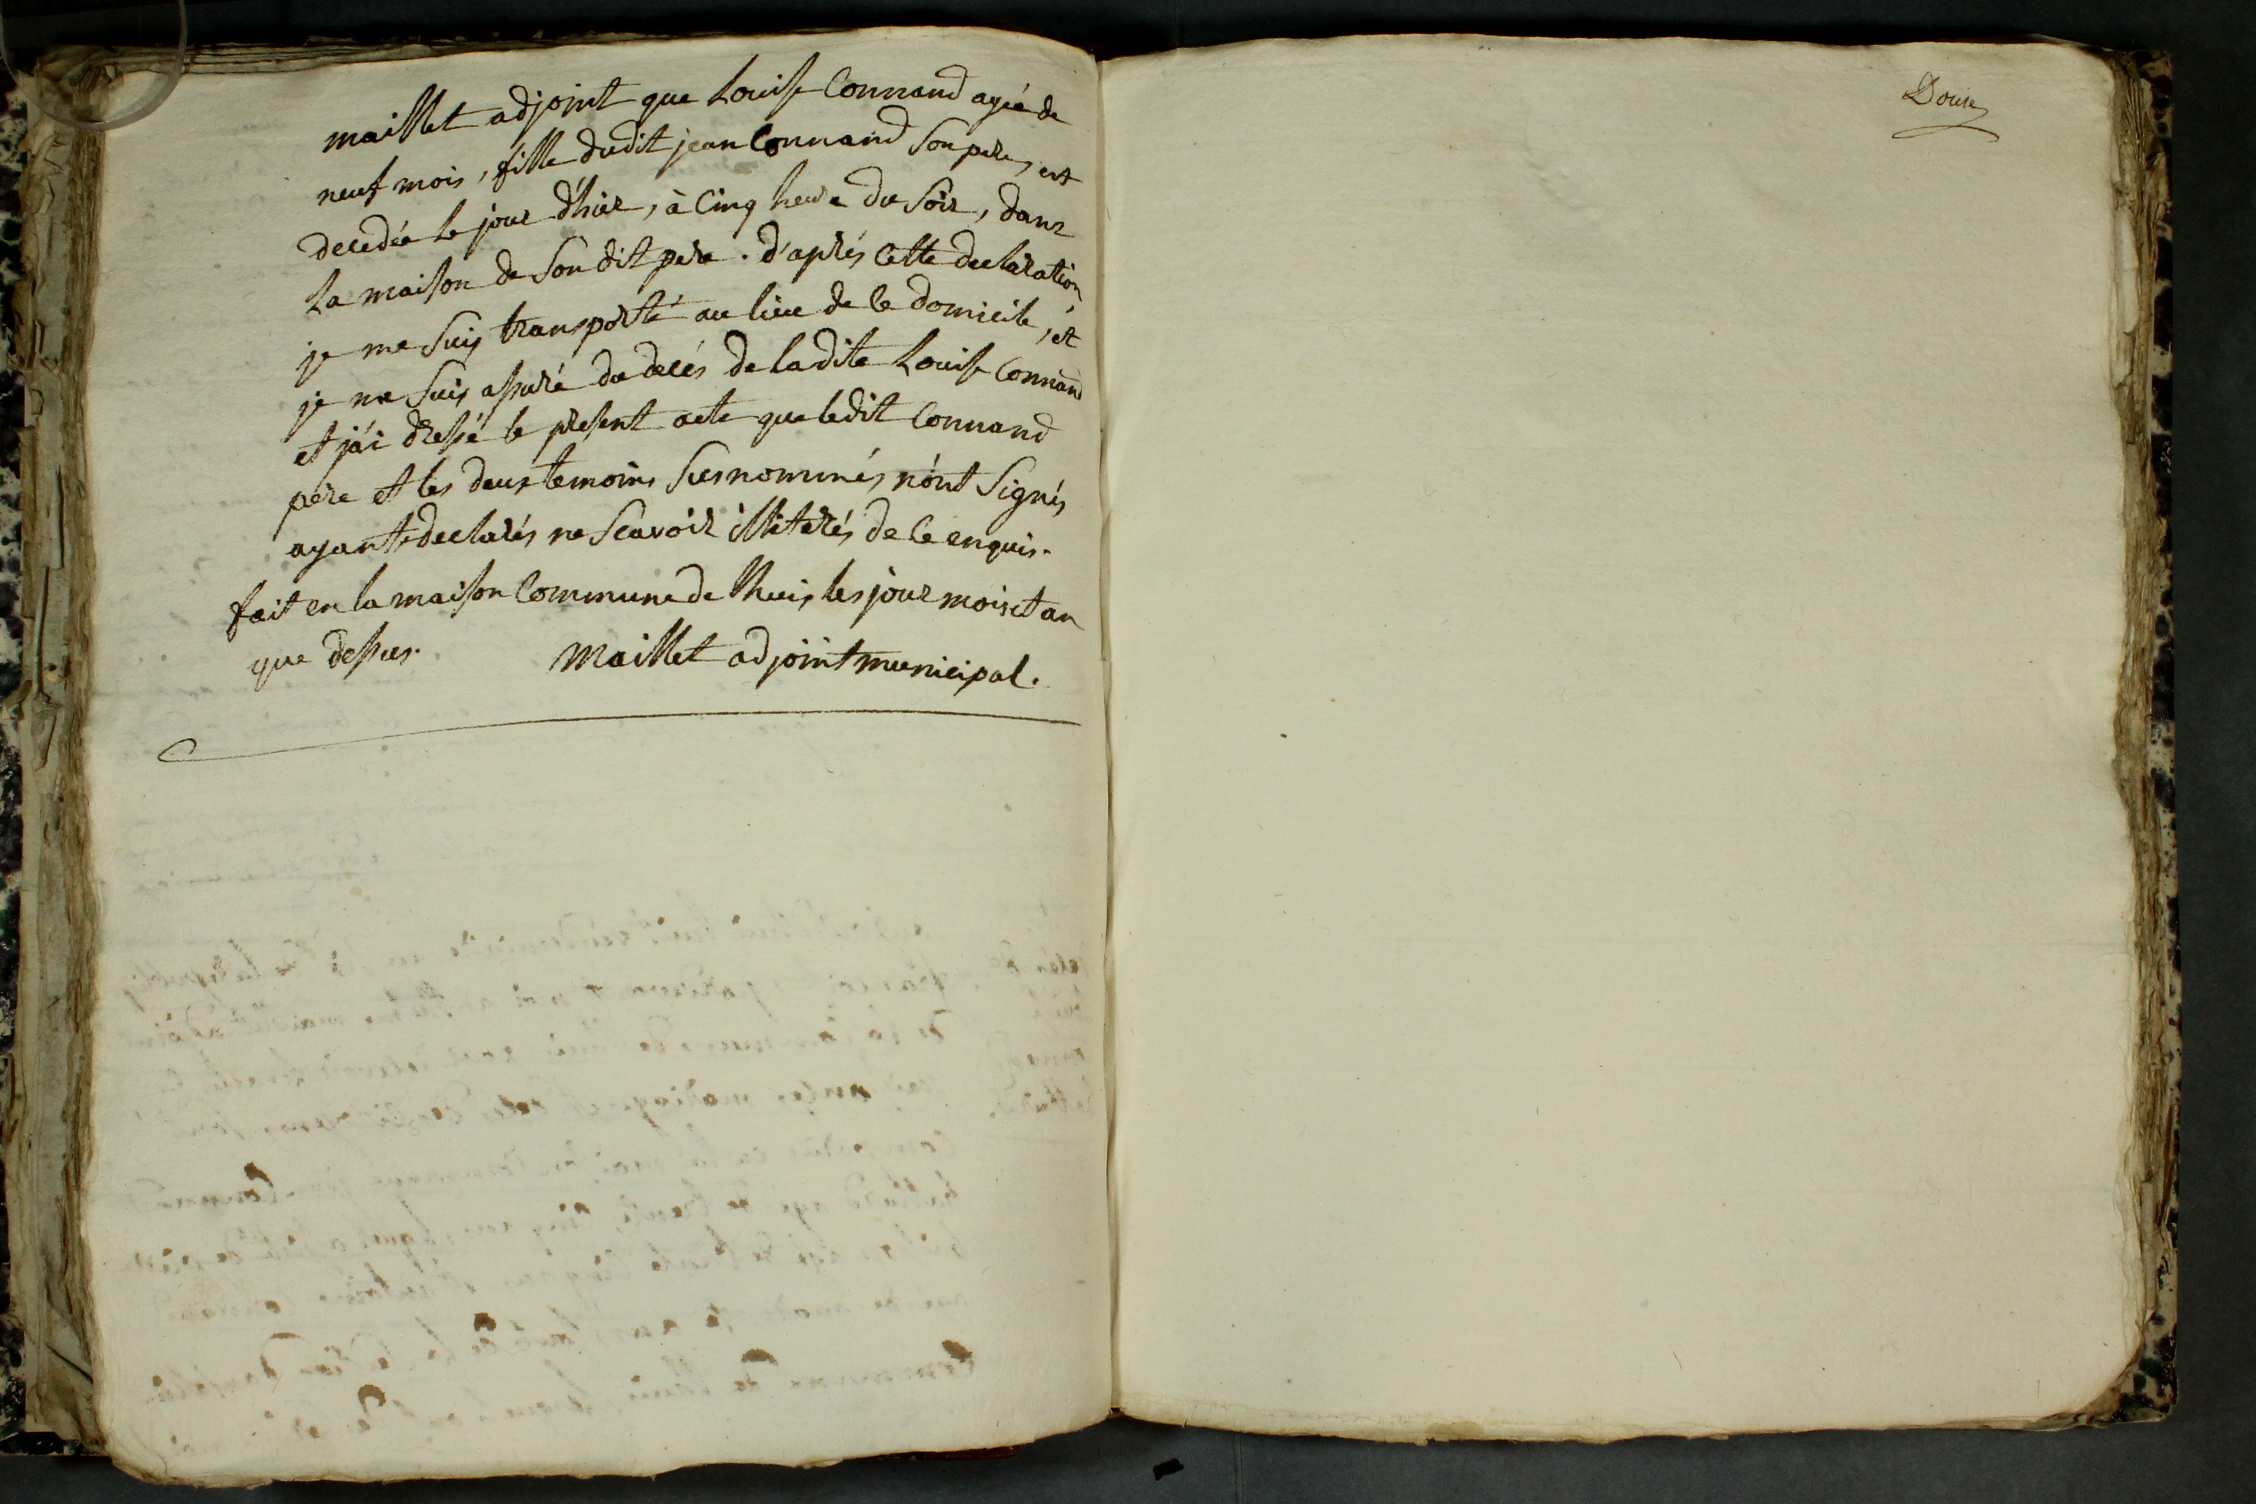 maillet adjoint que Louise Connand agée de
neuf mois, fille dudit jean Connand Son pere, est
decedée le jour d'hier, à Cinq heure du Soir, dans
La maison de Son dit pere. d'aprés Cette declaration,
je me Suis transporté au lieu de Ce domicile, et
je me Suis assuré du decés de ladite Louise Connand
et j'ái dressé le present acte que ledit Connand
pére et les deux temoins Susnommés n'ónt Signés
ayants declarés ne Scavoir illiterés de Ce enquis.
fait en la maison Commune de lhuis les jour mois et an
que dessus. Maillet adjoint municipal.
Douse